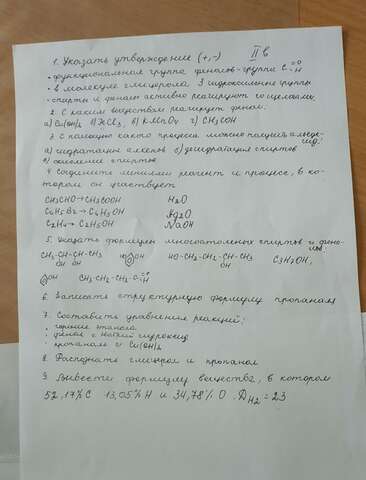 1. Указать утверждение (+,-) II в
- функциональная группа фенолов-группа C=O H
- в молекуле глицерола 3 гидроксильные группы
- спирты и фенолы активно реагируют со щелочами.
2. С каким веществом реагирует фенол:
а) Cu(OH)2 б) FeCl3 в) KMnO4 г) CH3COH
3. С помощью какого процесса можно получить альде-
гид.
а) гидратация алкенов б) дегидратация спиртов
в) окисление спиртов
4 Соедините линиями реагент и процесс, в ко-
тором он участвует
CH3CHO→CH3COOH H2O
C6H5Br→C6H5OH Ag2O
C2H4→C2H5OH NaOH
5. Указать формулы многоатомных спиртов и фено-
лов.
CH2-CH-CH-CH3 HO OH HO-CH2-CH2-CH-CH3 C3H7OH,
OH OH OH
OH CH3-CH2-CH2-C=O H
6. Записать структурную формулу пропаналя
7. Составить уравнения реакций:
- горение этанола
- фенол с натий гидроксид
- пропаналь и Cu(OH)2
8. Распознать глицерол и пропанол
9. Вывести формулу вещества, в котором
52,17% C 13,05% H и 34,78% O. DH2=23